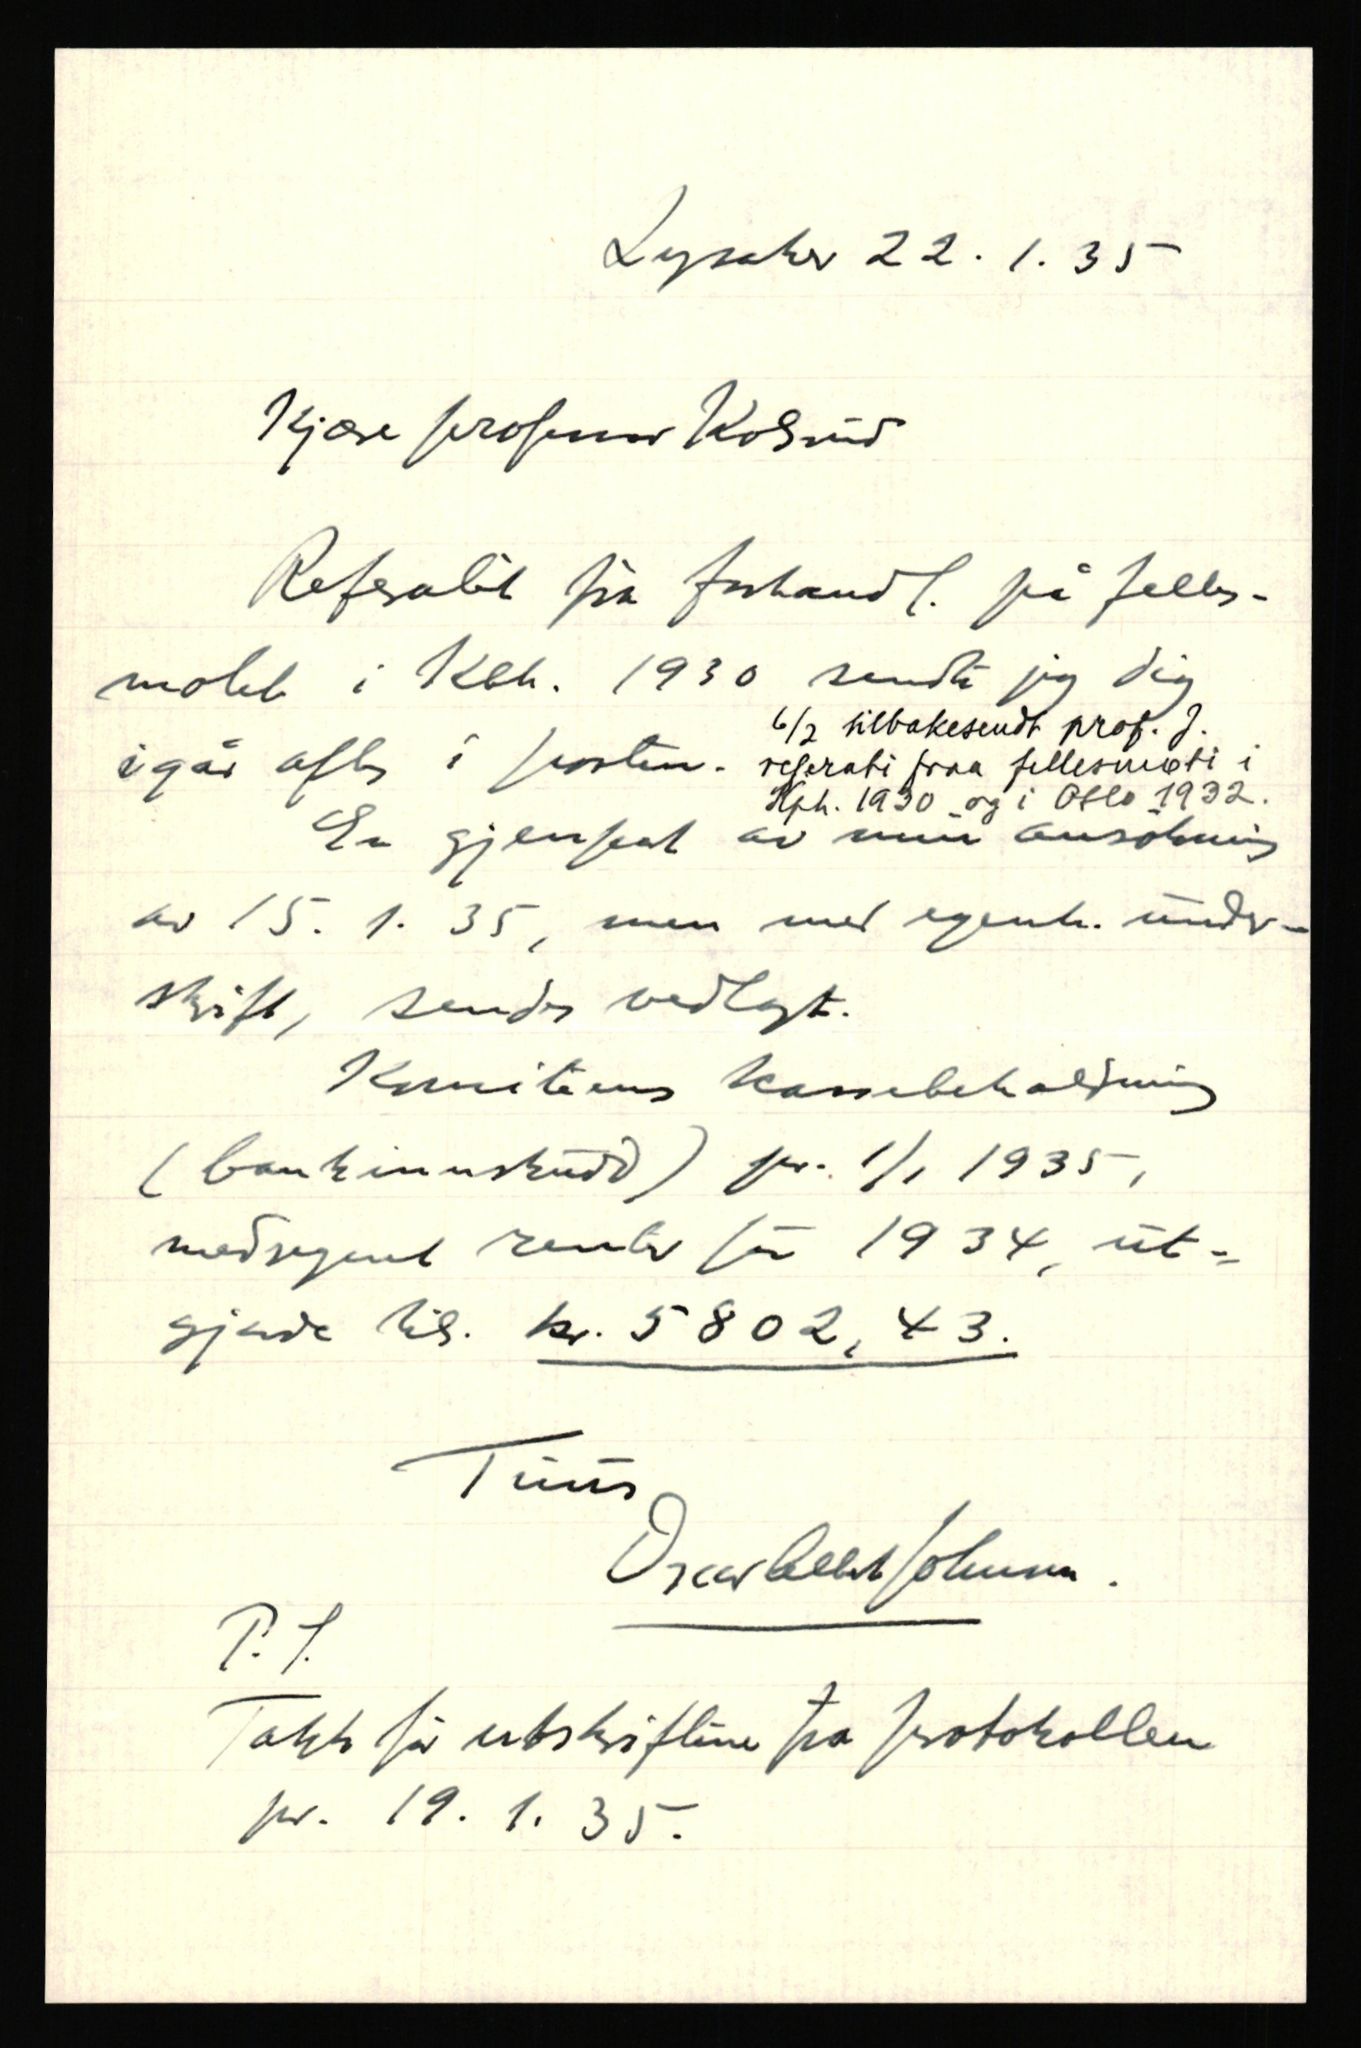 Lysaker 22. 1. 35
Kjære professor Kolsrud
Referatet fra forhandl. på felles-
møtet i Kbh. 1930 sendte jeg dig
igår aftes i posten.
6/2 tilbakesendt prof. J.
referati fraa fellesmøti i
Kph. 1930 og i Oslo 1932.
En gjenpart av min ansökning
av 15. 1. 35, men med egenh. under-
skrift, sendes vedlagt.
Komitéens kassebeholdning
(bankinnskudd) pr. 1/1 1935,
medregnet renter for 1934, ut-
gjorde tils. kr. 5802,43.
Tuus
Oscar Albert Johnsen.
P. S.
Takk for utskriftene fra protokollen
pr. 19. 1. 35.